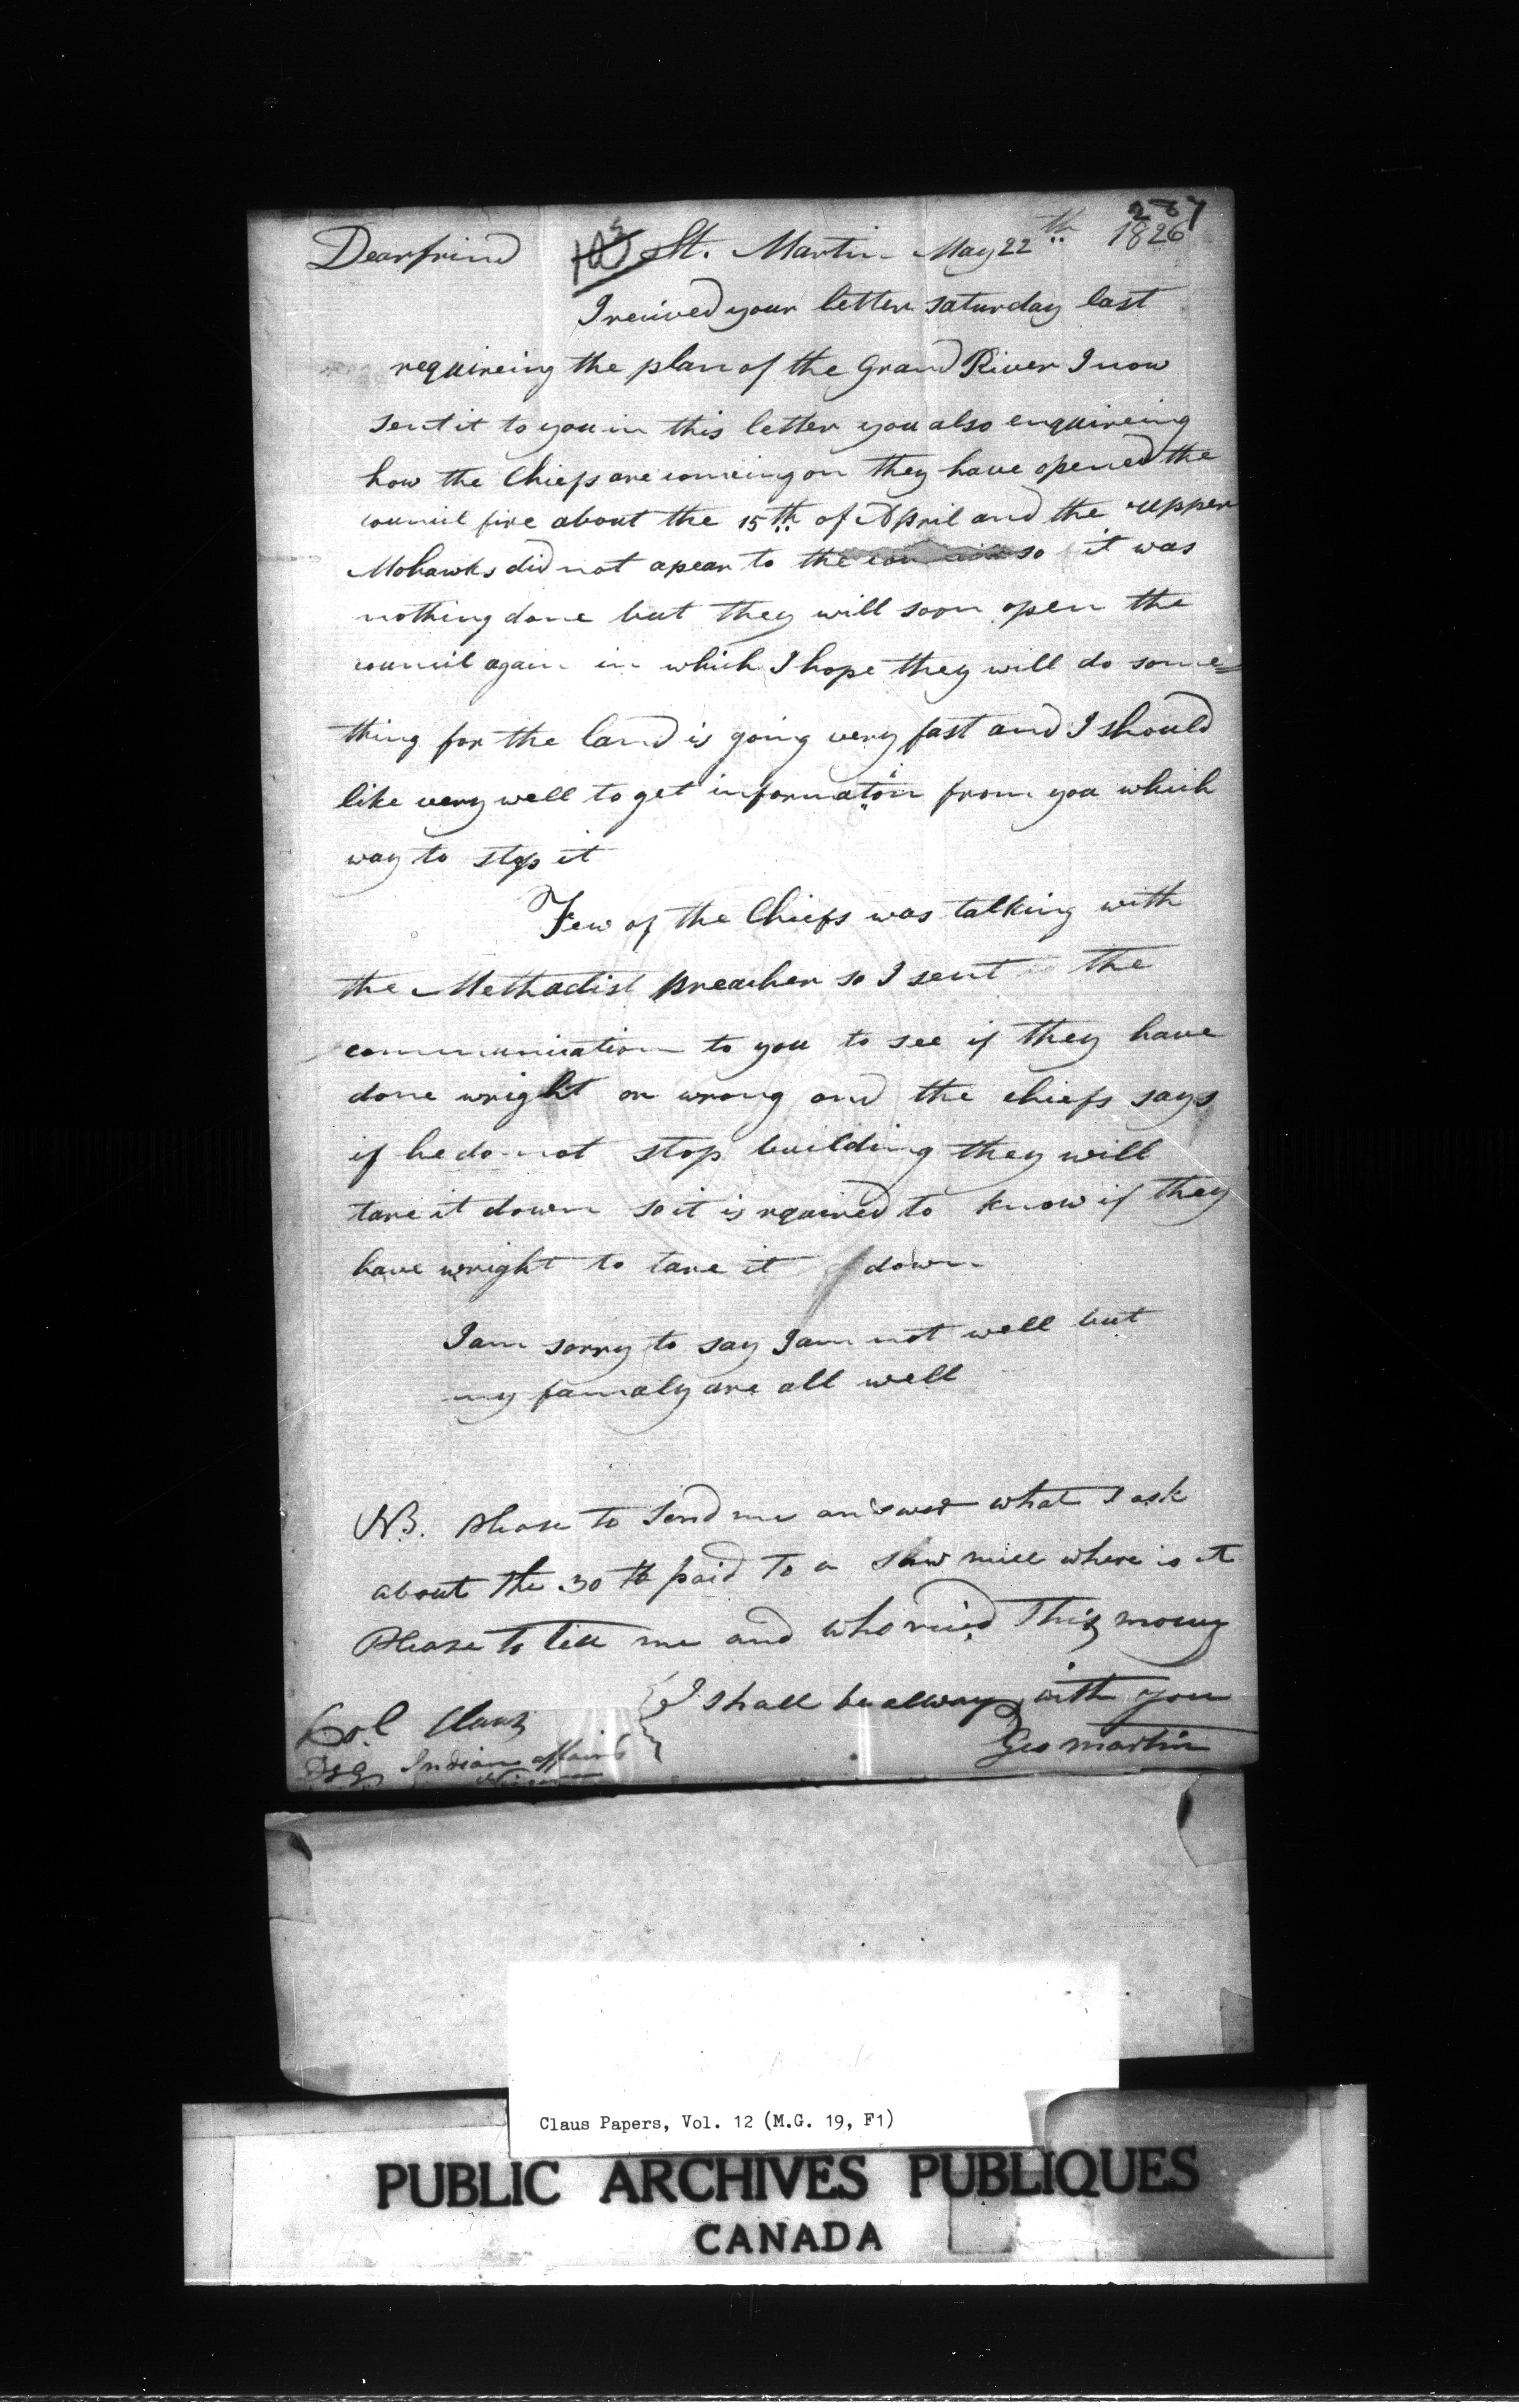 267
Dearfrind St. Martin May 22th 1826
I recived your letter saturday last
requireing the plan of the Grand River I now
sent it to you in this letter you also enquireing
how the Chiefs are comeing on they have opened the
council fire about the 15th of April and the upper
Mohawks did not apear to the so it was
nothing done but they will soon open the
council again in which I hope they will do some=
thing for the land is going very fast and I should
like very well to get informaton from you which
way to stop it
Few of the Chiefs was talking with
the Methodist preacher so I sent the
communication to you to see if they have
done wright or wrong and the chiefs says
if he do not stop building they will
tare it down so it is rquired to know if they
have wright to tare it down
I am sorry to say I am not well but
my famaly are all well
NB. Please to send me answer what I ask
about the 30 paid to a saw mill where is it
Please to tell me and who this money
I shall be always with you
Geo Martin
Col Claus
Indian affairs
Claus Papers, Vol. 12 (M.G. 19, F1)
PUBLIC ARCHIVES PUBLIQUES
CANADA